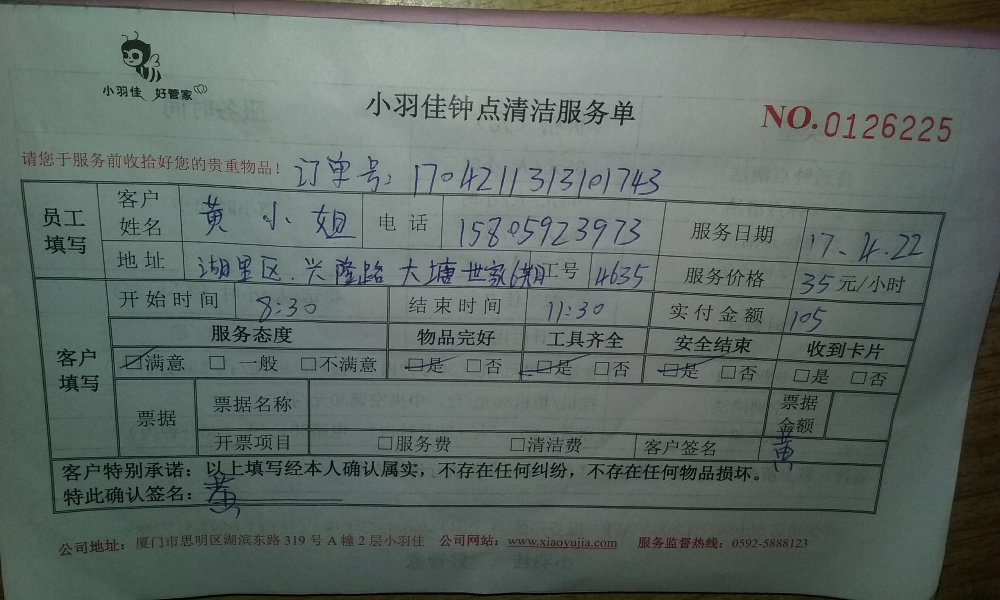 小羽佳 好管家
小羽佳钟点清洁服务单
NO.0126225
请您于服务前收拾好您的贵重物品！ 订单号：1704211313101743
员工填写 客户姓名 黄小姐 电话 15805923973 服务日期 17.4.22
地址 湖里区.兴隆路大塘世家6期 工号 4635 服务价格 35元/小时
客户填写 开始时间 8:30 结束时间 11:30 实付金额 105
服务态度 物品完好 工具齐全 安全结束 收到卡片
☑满意 □一般 □不满意 ☑是 □否 ☑是 □否 ☑是 □否 □是 □否
票据 票据名称 票据金额
开票项目 □服务费 □清洁费 客户签名 黄
客户特别承诺：以上填写经本人确认属实，不存在任何纠纷，不存在任何物品损坏。
特此确认签名：黄
公司地址：厦门市思明区湖滨东路319号A幢2层小羽佳 公司网站：www.xiaoyujia.com 服务监督热线：0592-5888123